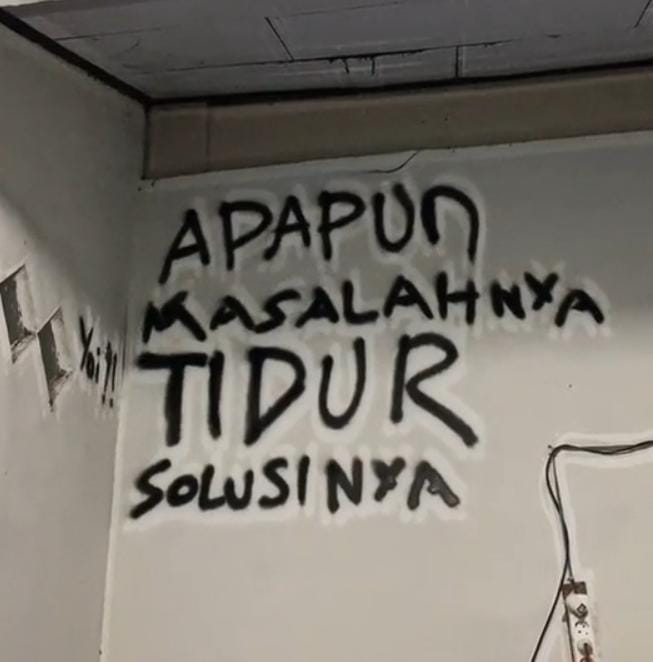 APAPUn
MASALAHNYA
TIDUR
SOLUSINYA
Yoi!!